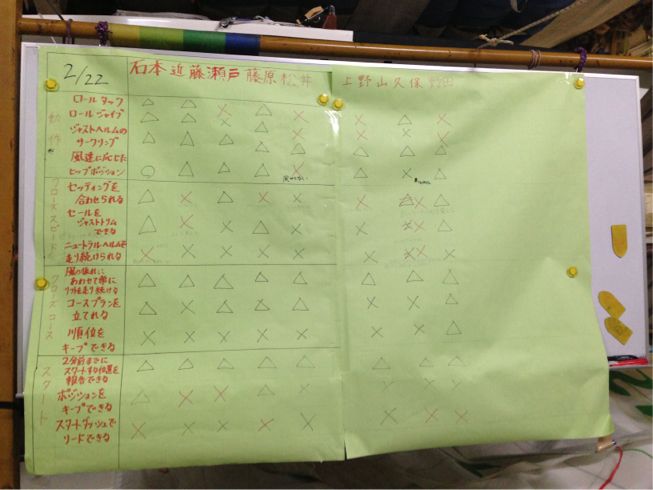 2/22 石本 近藤 瀬戸 藤原 松井 上野山 久保 野田
動作
ロールタック
ロールジャイブ
ジャストヘルムの
サークリング
風速に応じた
ヒップポジション
クローズスピード
セッティングを
合わせられる
セールを
ジャストトリム
できる
ニュートラルヘルムで
走り続けられる
クローズコース
風の振れに
あわせて常に
リフトを走り続ける
コースプランを
立てれる
順位を
キープできる
スタート
2分前までに
スタートする位置を
報告できる
ポジションを
キープできる
スタートダッシュで
リードできる